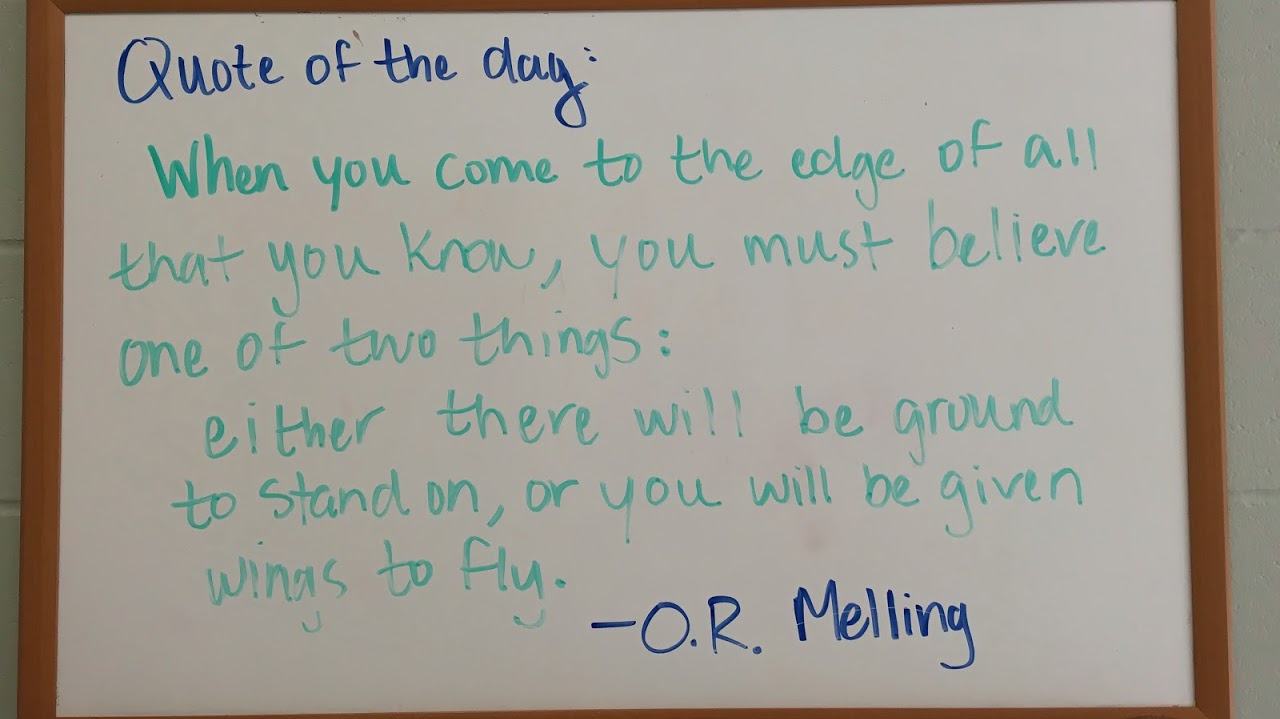 Quote of the day:
When you come to the edge of all
that you know, you must believe
one of two things:
either there will be ground
to stand on, or you will be given
wings to fly.
-O.R. Melling